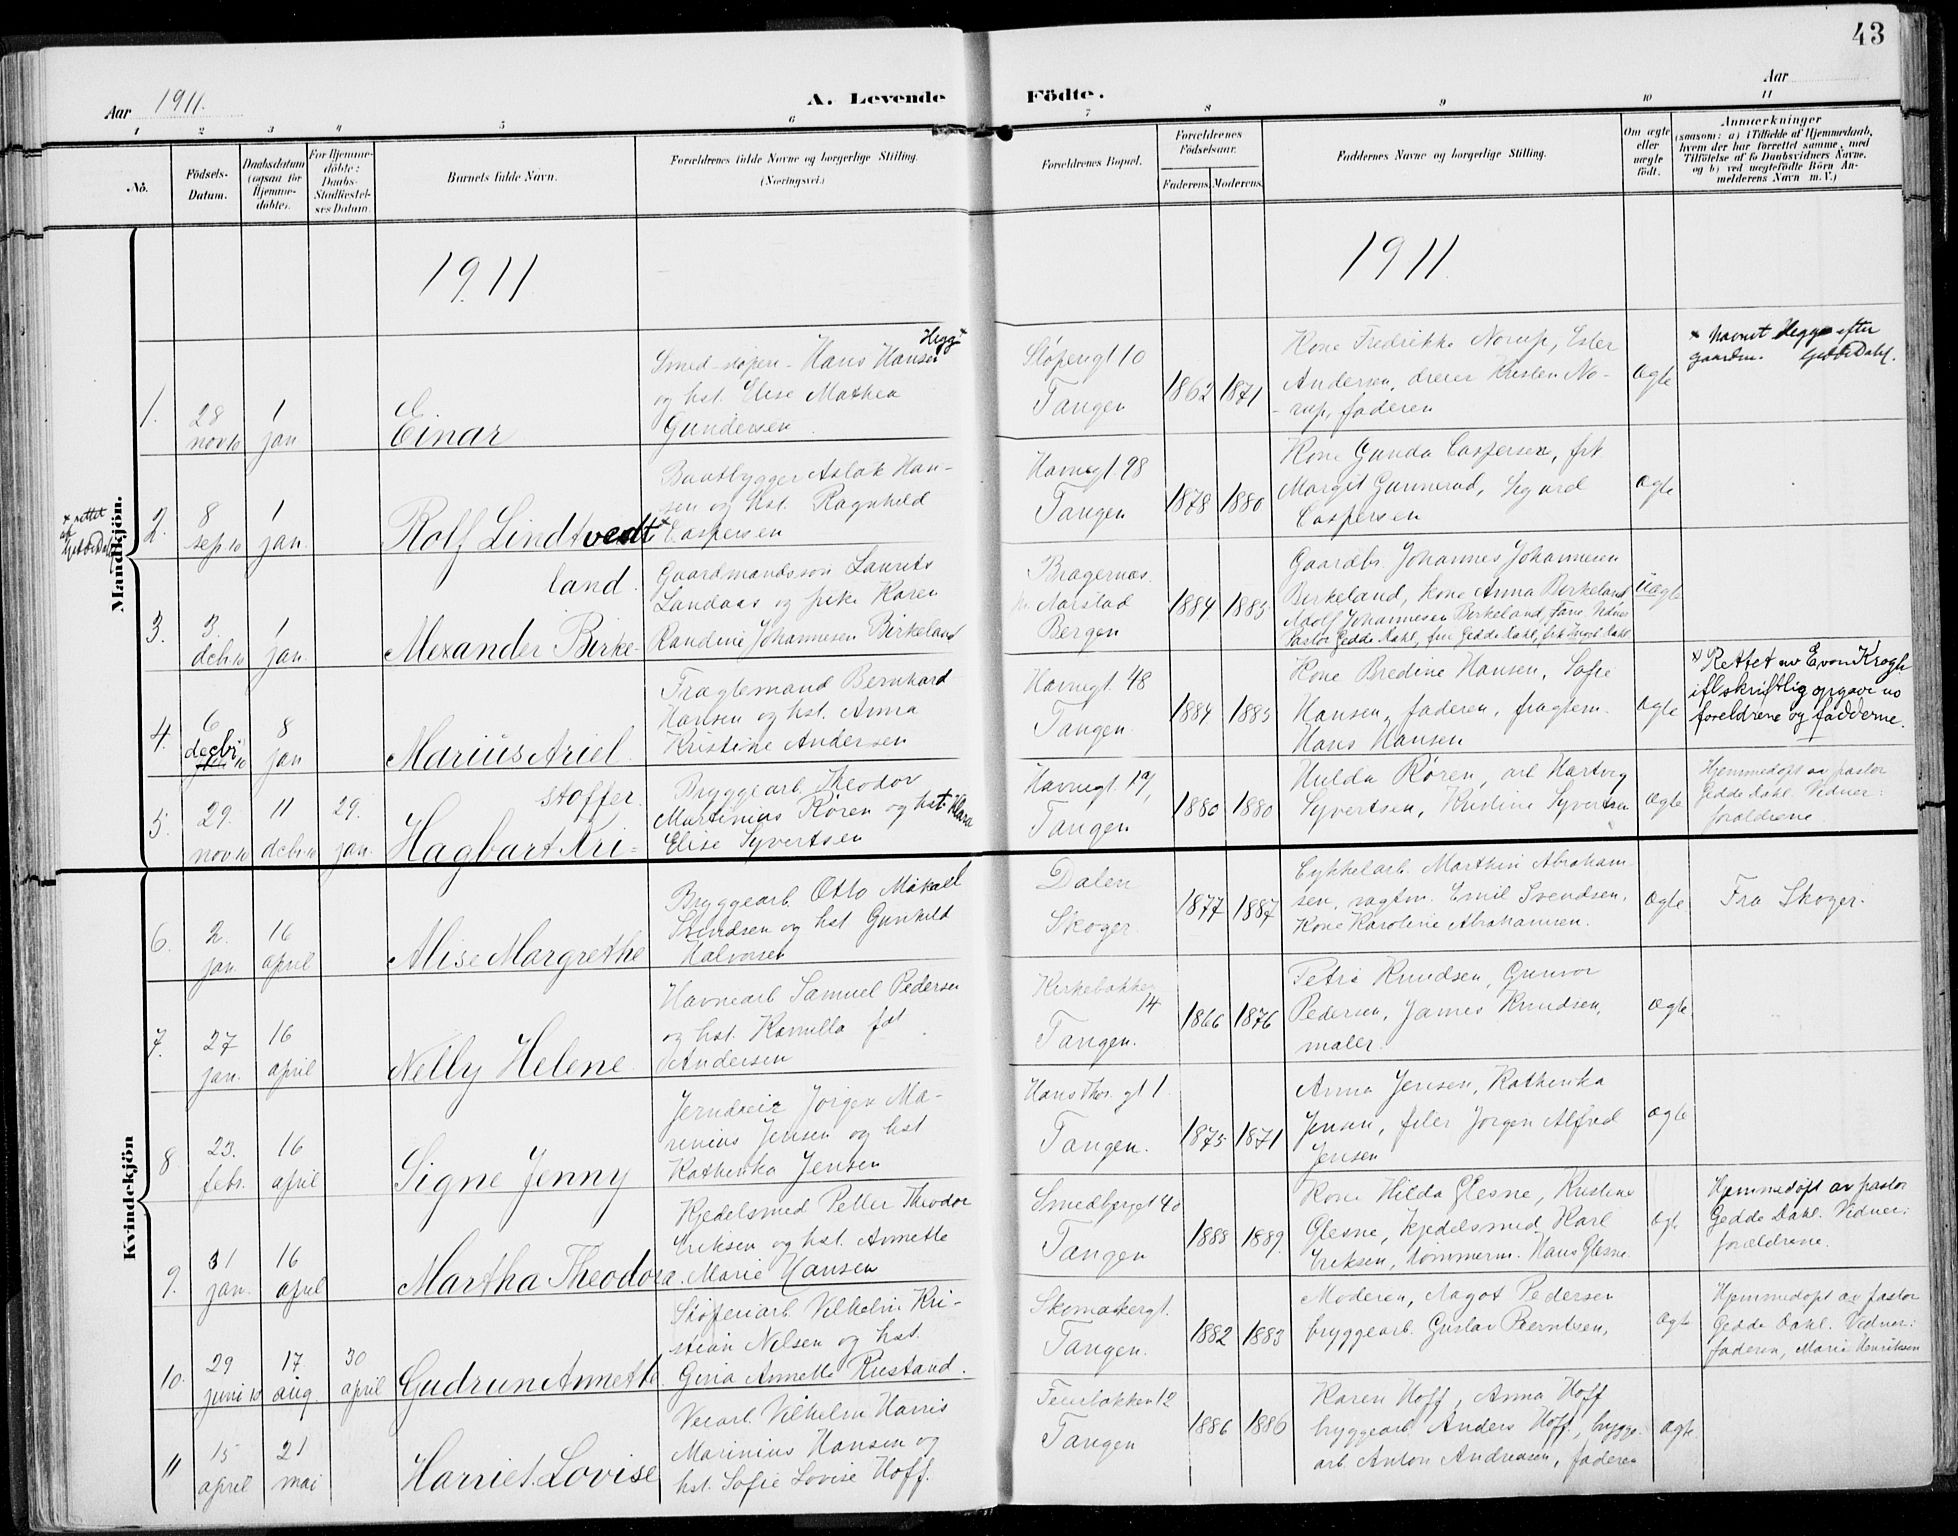 43
Aar 1911.
A. Levende Födte.
Aar
1 2 3 4 5 6 7 8 9 10 11
No.
Födsels-
Datum.
Daabsdatum
(ogsaa for
Hjemme-
döbte).
For Hjemme-
döbte:
Daabs-
Stadfæstel-
ses Datum.
Barnets fulde Navn.
Forældrenes fulde Navne og borgerlige Stilling.
(Næringsvei.)
Forældrenes Bopæl.
Forældrenes
Födselsaar.
Faderens. Moderens.
Faddernes Navne og borgerlige Stilling.
Om ægte
eller
uægte
födt.
Anmærkninger
(saasom: a) i Tilfælde af Hjemmedaab,
hvem der har forrettet samme, med
Tilföielse af to Daabsvidners Navne.
og b) ved uægtefödte Börn An-
melderens Navn m. V.)
1911
1911
Mandkjön.
1.
28
nov 10
1
jan
Einar
Smed-støperi- Hans Hansen Hegg x
og hst. Elise Mathea
Gundersen
Støperigt 10
Tangen
1862 1871
Kone Fredrikke Norup, Ester
Andersen, dreier Kristen No-
rup, faderen
ægte
x Navnet Hegg efter
gaarden. Gedde Dahl.
x rettet
af
Gedde Dahl
2.
8
sep 10
1
jan.
Rolf Lindtvedt x
Baatbygger Aslak Han-
sen og hst. Ragnhild
Caspersen
Havnegt 98
Tangen
1878 1880
Kone Gunda Caspersen, frk
Margit Gunnerud, Sigurd
Caspersen
ægte
3.
3.
decb 10
1
jan.
Alexander Birke-
land.
Gaardmandssøn Laurits
Landaas og pike Karen
Randine Johannesen Birkeland
Bragernæs.
Aarstad
Bergen
1884 1885
Gaardbr. Johannes Johannesen
Birkeland, Kone Anna Birkeland
Adolf Johannesen Birkeland, Fane. Vidner
Pastor Gedde Dahl, fru Gedde Dahl, frk Dahl
Uægte
4.
6
decbr 10
8
jan
Marius Ariel
Fragtemand Bernhard
Hansen og hst. Anna
Kristine Andersen
Havnegt. 48
Tangen.
1884 1885
Kone Bredine Hansen, Sofie
Hansen, faderen, fragtem.
Hans Hansen
ægte
x Rettet av E von Krogh
ifl skriftlig opgave av
foreldrene og fadderne.
5.
29.
nov. 10
11
decb. 10
29.
jan.
Hagbart Kri-
stoffer.
Bryggearb. Theodor
Martinius Røren og hst. Klara
Elise Syvertsen
Havnegt 19,
Tangen
1880 1880
Hulda Røren, arb Hartvig
Syvertsen, Kristine Syvertsen
ægte
Hjemmedøpt av pastor
Gedde Dahl. Vidner:
forældrene
Kvindekjön
6.
2.
jan.
16
april
Alise Margrethe
Bryggearb Otto Mikael
Svendsen og hst Gunhild
Halvorsen
Dalen
Skoger
1877 1887
Cykkelarb. Marthin Abraham
sen, vagtm. Emil Svendsen,
Kone Karoline Abrahamsen.
ægte
Fra Skoger.
7.
27
jan.
16
april
Nelly Helene
Havnearb Samuel Pedersen
og hst. Kamilla født
Andersen
Kirkebakken
14
Tangen.
1866 1876
Petra Knudsen, Gunvor
Pedersen, James Knudsen,
maler.
ægte.
8
23.
febr.
16
april
Signe Jenny
Jerndreier Jørgen Ma-
rinius Jensen og hst
Kathinka Jensen
Hans Thor. gt 1.
Tangen.
1875 1871
Anna Jensen, Kathinka
Jensen, filer Jørgen Alfred
Jensen
ægte
9.
31
jan.
16
april
Martha Theodora.
Kjedelsmed Petter Theodor
Eriksen og hst. Annette
Marie Hansen
Smedbjerget 40
Tangen
1888 1889.
Kone Hilda Glesne, Kristine
Glesne, Kjedelsmed Karl
Eriksen, tømmerm. Hans Glesne
ægt
Hjemmedøpt av pastor
Gedde Dahl. Vidner:
forældrene.
10.
29
juni 10
17.
aug.
30
april
Gudrun Annette
Støperiarb. Vilhelm Kri-
stian Nilsen og hst.
Gina Annette Rustand.
Skomakergt.
Tangen.
1882 1883
Moderen, Aagot Pedersen
bryggearb. Gustav Berntsen,
ægte
Hjemmedøpt av pastor
Gedde Dahl. Vidner:
faderen, Marie Henriksen
11
15
april
21
mai
Harriet Lovise
Veiarb. Vilhelm Harris
Marinius Hansen og
hst. Sofie Lovise Hoff.
Feierbakken 12
Tangen
1886 1886
Karen Hoff, Anna Hoff
bryggearb. Anders Hoff, brygge-
arb. Anton Andreasen, faderen
ægte.